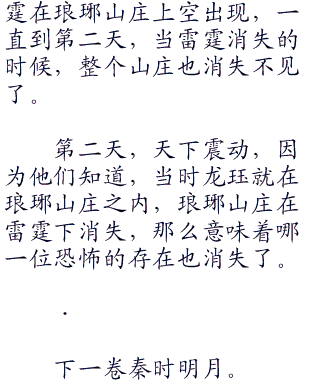 霆在琅琊山庄上空出现，一
直到第二天，当雷霆消失的
时候，整个山庄也消失不见
了。
第二天，天下震动，因
为他们知道，当时龙珏就在
琅琊山庄之内，琅琊山庄在
雷霆下消失，那么意味着哪
一位恐怖的存在也消失了。
.
下一卷秦时明月。